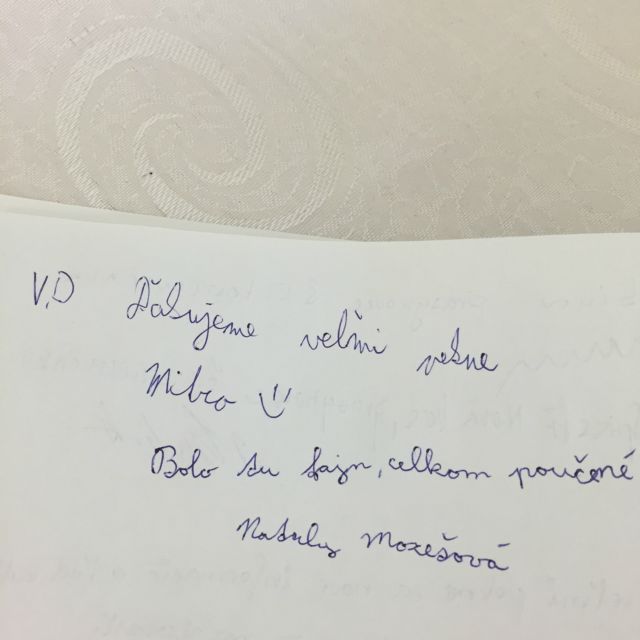 V.D Ďakujeme veľmi pekne
Mirco
Bolo tu fajn, celkom poučené
Nataly Mozešová